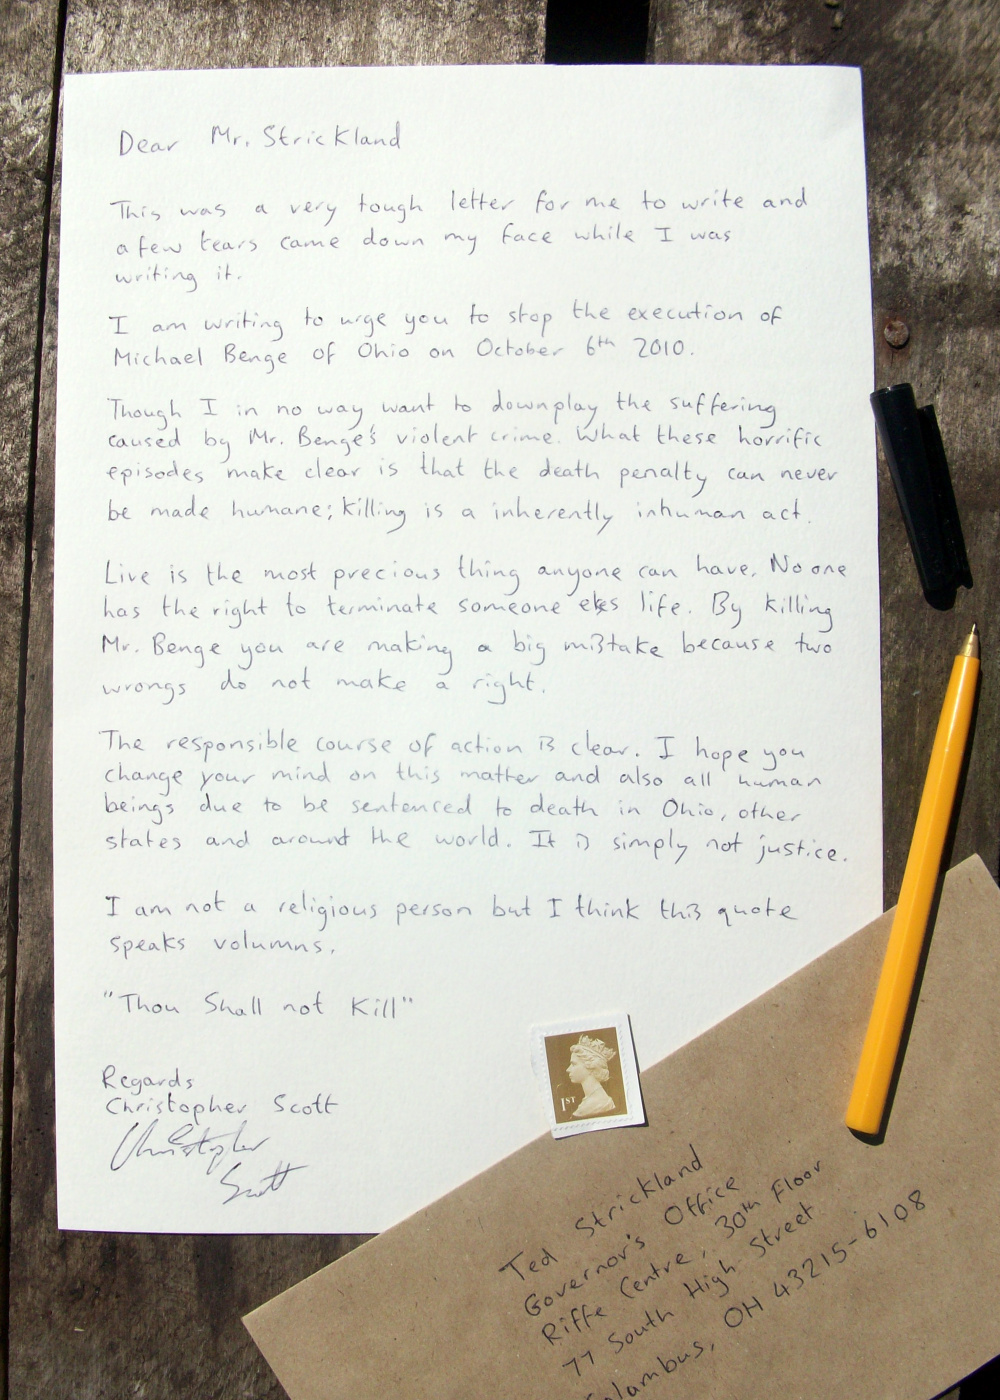 Dear Mr. Strickland
This was a very tough letter for me to write and
a few tears came down my face while I was
writing it.
I am writing to urge you to stop the execution of
Michael Benge of Ohio on October 6th 2010.
Though I in no way want to downplay the suffering
caused by Mr. Benge's violent crime. What these horrific
episodes make clear is that the death penalty can never
be made humane; killing is a inherently inhuman act.
Live is the most precious thing anyone can have. No one
has the right to terminate someone elses life. By killing
Mr. Benge you are making a big mistake because two
wrongs do not make a right.
The responsible course of action is clear. I hope you
change your mind on this matter and also all human
beings due to be sentenced to death in Ohio, other
states and around the world. It is simply not justice.
I am not a religious person but I think this quote
speaks volumns.
"Thou Shall not Kill"
Regards
Christopher Scott
Christopher
Scott
1ST
Ted Strickland
Governor's Office
Riffe Centre, 30th Floor
77 South High Street
Columbus, OH 43215-6108